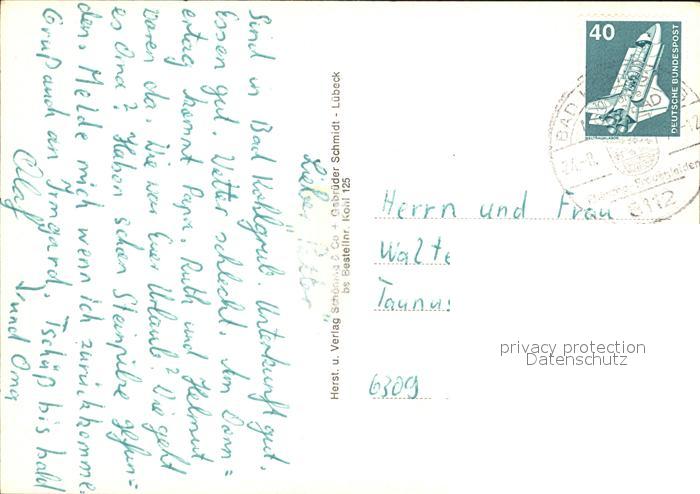 Lieber
Sind in Bad Kohlgrub. Unterkunft gut.
Essen gut. Wetter schlecht. Am Donn=
ertag kommt Papa. Ruth und Helmut
waren da. Wie war Euer Urlaub? Wie geht
es Oma? Haben schon Steinpilze gefun=
den. Melde mich wenn ich zurückkomme.
Gruß auch an Irmgard. Tschüß bis bald
Olaf
und Oma
Herst. u. Verlag Schöning & Co + Gebrüder Schmidt - Lübeck
bs Bestellnr. Kohl 125
40
DEUTSCHE BUNDESPOST
BAD
8112
Herrn und Frau
Walte
Taunus
6309
privacy protection
Datenschutz